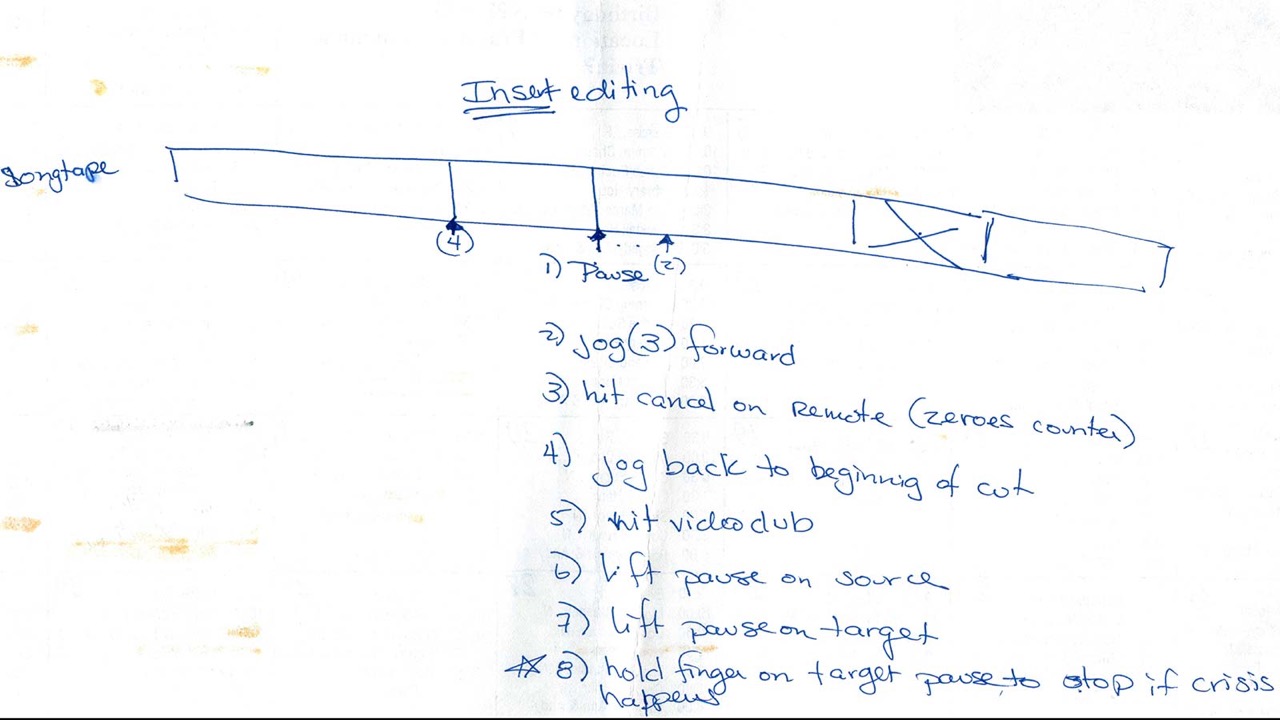 Insert editing
Songtape
(4)
1) Pause (2)
2) jog(3) forward
3) hit cancel on Remote (zeroes counter)
4) jog back to beginnig of cut
5) hit video dub
6) lift pause on source
7) lift pause on target
8) hold finger on target pause to stop if crisis
happens